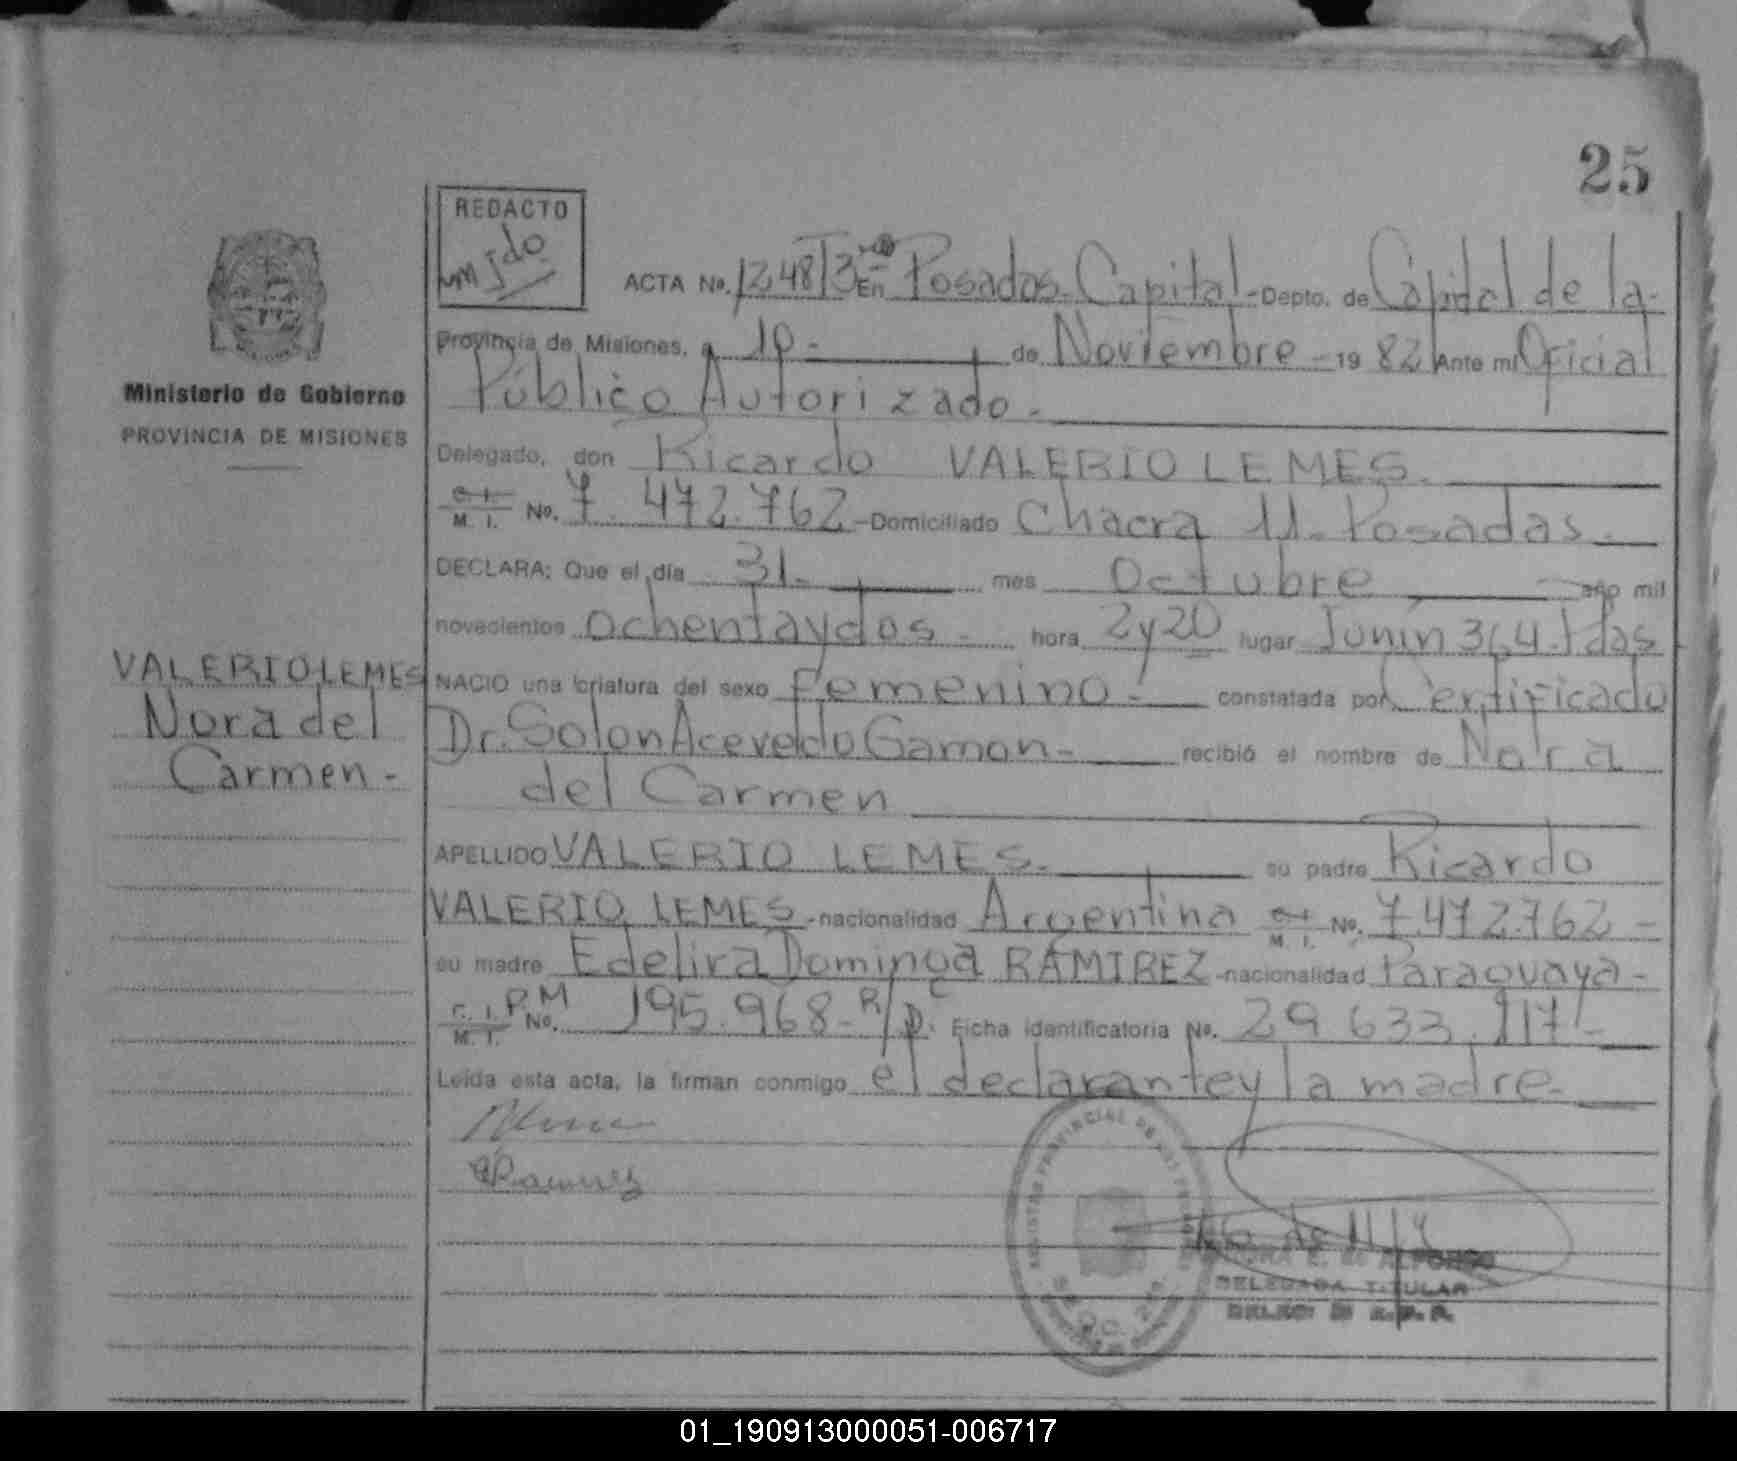 25
REDACTO
ACTA No. 1248 T3 En Posadas-Capital-Depto. de Capital de la-
Provincia de Misiones, a 10- de Noviembre-19 82 Ante mi Oficial
Público Autorizado.
Ministerio de Gobierno
PROVINCIA DE MISIONES
Delegado, don Ricardo VALERIO LEMES.
M. I. No. 7.472.762-Domiciliado Chacra 11.Posadas.
DECLARA: Que el día 31- mes Octubre año mil
novecientos ochentaydos- hora 2y20 lugar Junín 364.Pdas
VALERIO LEMES
Nora del
Carmen-
NACIO una criatura del sexo femenino- constatada por Certificado
Dr. Solon Acevedo Gamon- recibió el nombre de Nora
del Carmen
APELLIDO VALERIO LEMES. su padre Ricardo
VALERIO LEMES-nacionalidad Argentina M. I. No. 7.472.762-
su madre Edelira Dominga RAMIREZ-nacionalidad Paraguaya-
C. I. P.M
M. I. No. 195.968-R/D. Ficha identificatoria No. 29.633.117-
Leída esta acta, la firman conmigo el declarante y la madre-
ALFONSO
DELEGADA TITULAR
01_190913000051-006717